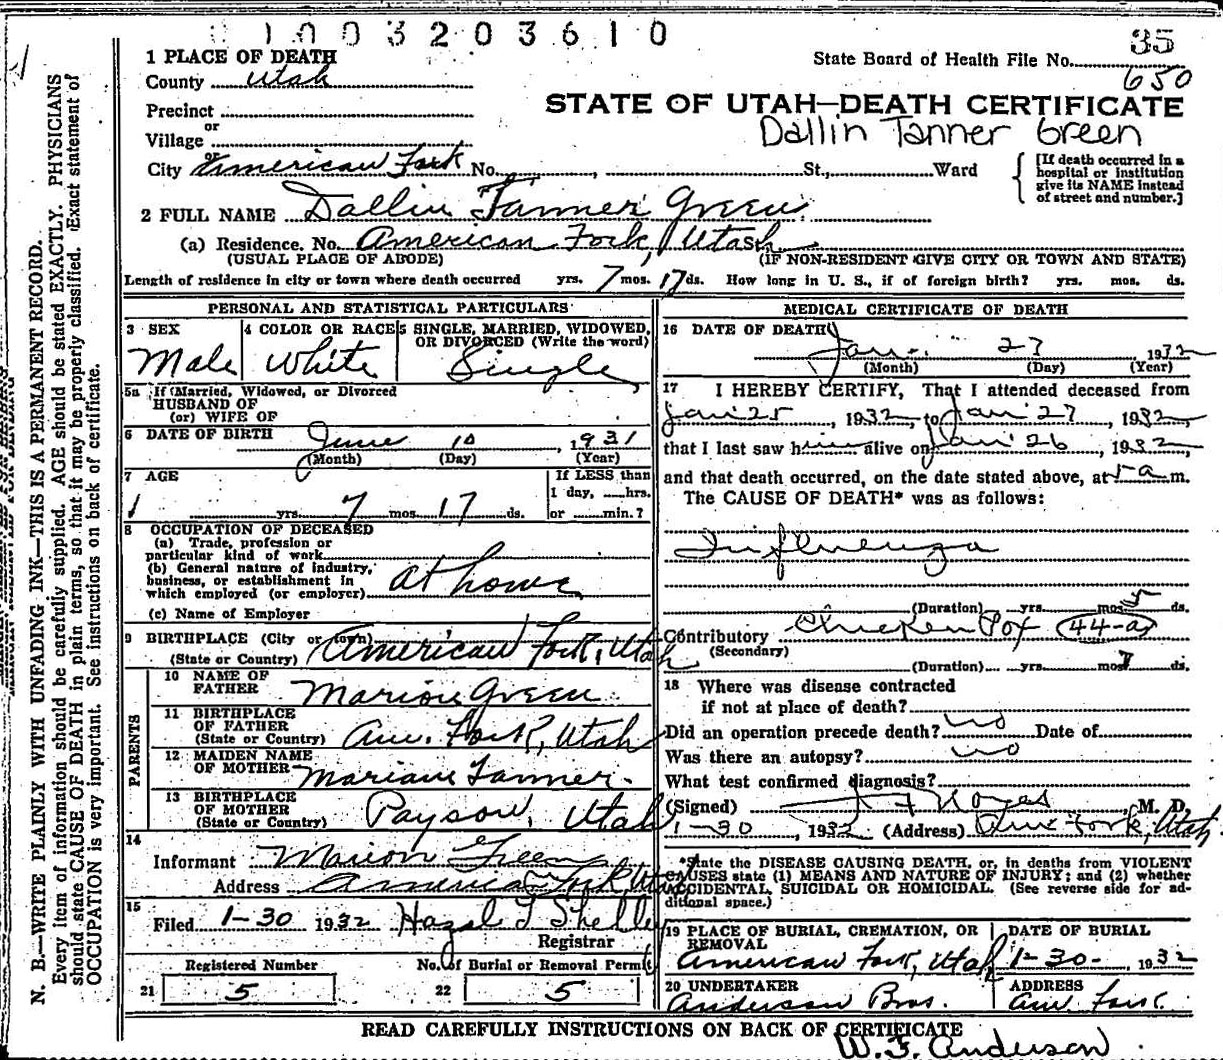 1003203610
35
State Board of Health File No.
650
1 PLACE OF DEATH
County Utah
STATE OF UTAH—DEATH CERTIFICATE
Precinct
Dallin Tanner Green
or
Village
or
City American Fork No. , St., Ward
[If death occurred in a hospital or institution give its NAME instead of street and number.]
2 FULL NAME Dallin Tanner Green
(a) Residence. No. American Fork, Utah St.,
(USUAL PLACE OF ABODE) (IF NON-RESIDENT GIVE CITY OR TOWN AND STATE)
Length of residence in city or town where death occurred yrs. 7 mos. 17 ds. How long in U. S., if of foreign birth? yrs. mos. ds.
PERSONAL AND STATISTICAL PARTICULARS
3 SEX
Male
4 COLOR OR RACE
White
5 SINGLE, MARRIED, WIDOWED, OR DIVORCED (Write the word)
Single
5a If Married, Widowed, or Divorced
HUSBAND OF
(or) WIFE OF
6 DATE OF BIRTH June 10, 1931
(Month) (Day) (Year)
7 AGE
yrs. 7 mos. 17 ds.
If LESS than
1 day, hrs.
or min.?
8 OCCUPATION OF DECEASED
(a) Trade, profession or
particular kind of work
(b) General nature of industry,
business, or establishment in
which employed (or employer) at home
(c) Name of Employer
9 BIRTHPLACE (City or town) American Fork, Utah
(State or Country)
PARENTS
10 NAME OF
FATHER Marion Green
11 BIRTHPLACE
OF FATHER
(State or Country) Am. Fork, Utah
12 MAIDEN NAME
OF MOTHER Mariam Tanner
13 BIRTHPLACE
OF MOTHER
(State or Country) Payson, Utah
14
Informant Marion Green
Address American Fork, Utah
15
Filed 1-30 1932 Hazel T Shelley
Registrar
Registered Number
21 5
No. of Burial or Removal Permit
22 5
MEDICAL CERTIFICATE OF DEATH
16 DATE OF DEATH
Jan. 27 1932
(Month) (Day) (Year)
17 I HEREBY CERTIFY, That I attended deceased from
Jan 25, 1932, to Jan 27, 1932,
that I last saw him alive on Jan 26, 1932,
and that death occurred, on the date stated above, at 5 a m.
The CAUSE OF DEATH* was as follows:
Influenza
(Duration) yrs. mos. 5 ds.
Contributory Chicken Pox 44-a
(Secondary)
(Duration) yrs. mos. 7 ds.
18 Where was disease contracted
if not at place of death?
Did an operation precede death? no Date of
Was there an autopsy? no
What test confirmed diagnosis?
(Signed) J F Noyes, M. D.
1-30, 1932 (Address) Am Fork, Utah
*State the DISEASE CAUSING DEATH, or, in deaths from VIOLENT
CAUSES state (1) MEANS AND NATURE OF INJURY; and (2) whether
ACCIDENTAL, SUICIDAL OR HOMICIDAL. (See reverse side for ad-
ditional space.)
19 PLACE OF BURIAL, CREMATION, OR REMOVAL
American Fork, Utah
DATE OF BURIAL
1-30-, 1932
20 UNDERTAKER
Anderson Bros.
ADDRESS
Am. Fork.
READ CAREFULLY INSTRUCTIONS ON BACK OF CERTIFICATE
W. F. Anderson
N. B.—WRITE PLAINLY WITH UNFADING INK—THIS IS A PERMANENT RECORD.
Every item of information should be carefully supplied. AGE should be stated EXACTLY. PHYSICIANS
should state CAUSE OF DEATH in plain terms, so that it may be properly classified. Exact statement of
OCCUPATION is very important. See instructions on back of certificate.